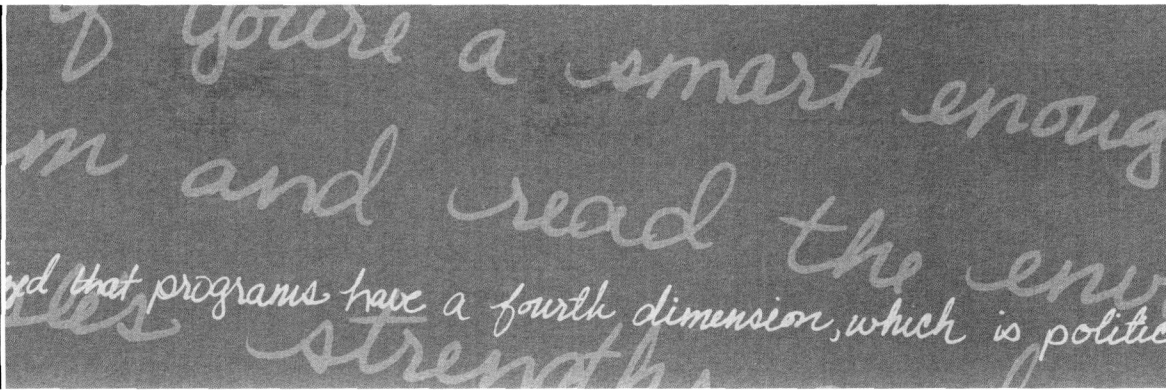 you're a smart enoug
m and read the env
zed that programs have a fourth dimension, which is politic
strength